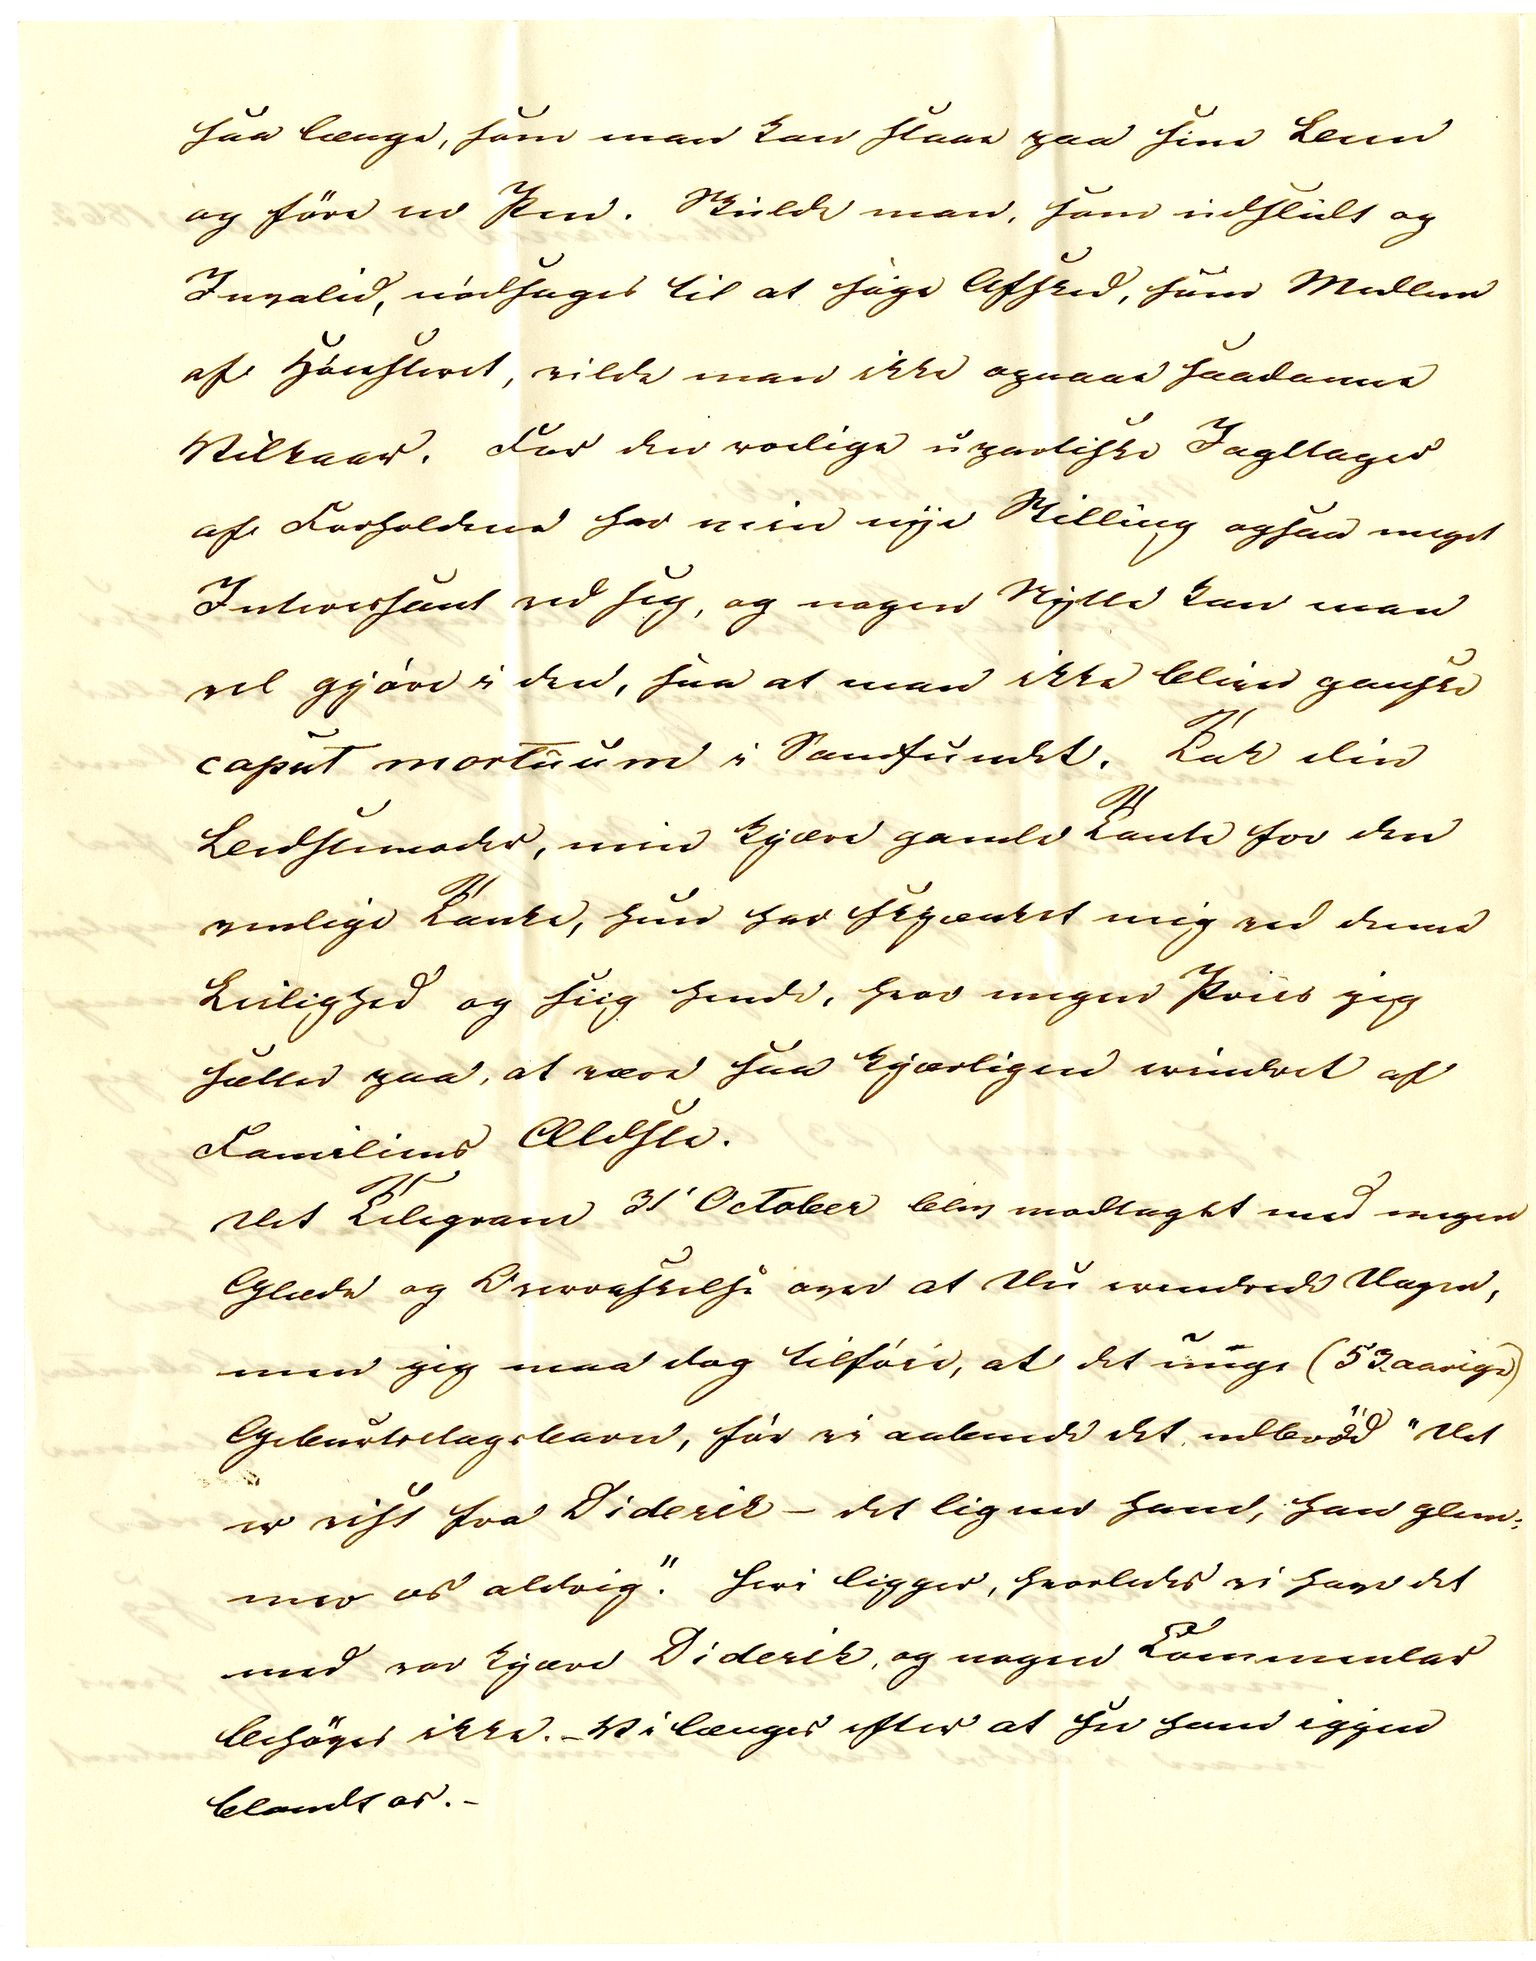 saa længe, som man kan staae paa sine Been
og före en Pen. Skulde man, som udslidt og
Invalid, nödsages til at söge Afsked, som Medlem
af Höiesteret, vilde man ikke opnaae saadanne
Vilkaar. For den rolige upartiske Iagttager
af Forholdene har min nye Stilling ogsaa meget
Interessant ved sig, og nogen Nytte kan man
vel gjöre i den, saa at man ikke bliver ganske
caput mortuum i Samfundet. Tak din
Bedstemoder, min kjære gamle Tante for den
venlige Tanke, hun har skjænket mig ved denne
Leilighed og siig hende, hvor megen Priis jeg
sætter paa, at være saa kjærligen erindret af
Familiens Ældste.
Det Telegram 31' October blev modtaget med megen
Glæde og Overraskelse over at Du erindrede Dagen,
men jeg maa dog tilföie, at det unge (52aarige)
Geburtsdagsbarn, för vi aabnede det udbröd "Det
er vist fra Diderik – det ligner ham, han glem:
mer os aldrig". Heri ligger, hvorledes vi have det
med vor kjære Diderik, og nogen Commentar
behöves ikke. – Vi længes efter at see ham iggen
blandt os. –